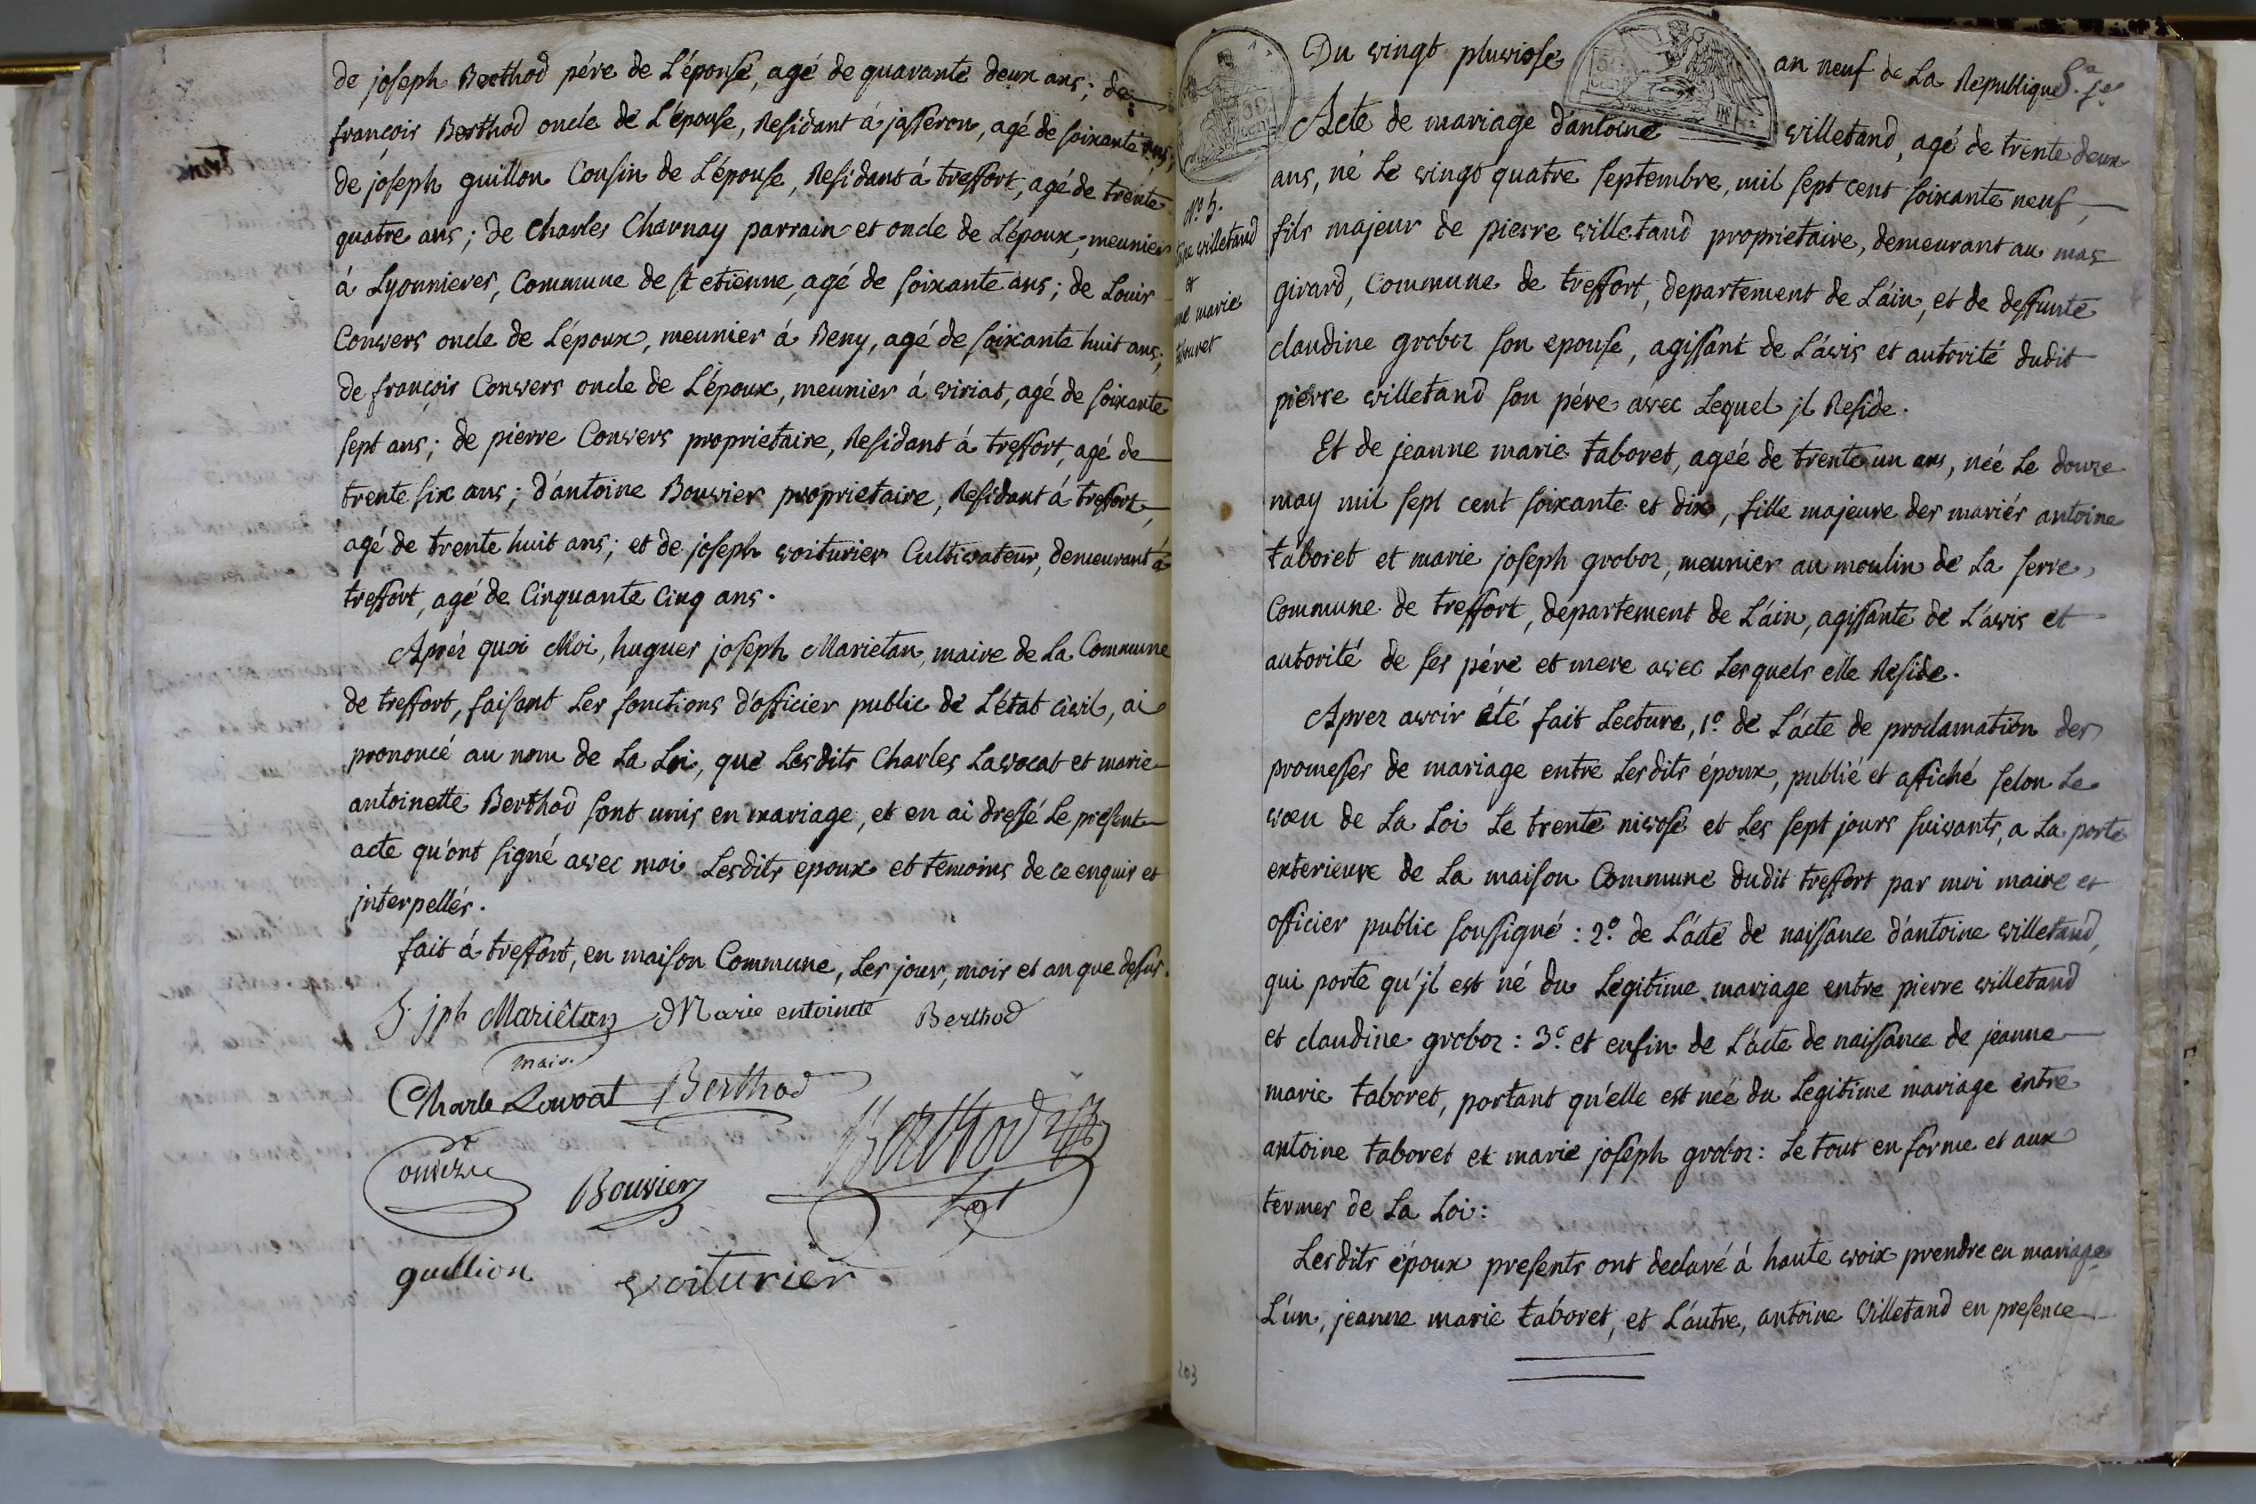 de joseph Berthod pére de L'épouse, agé de quarante deux ans; de
françois Berthod oncle de L'épouse, Residant á jasseron, agé de soixante ans;
de joseph guillon Cousin de L'épouse, Residant á treffort, agé de trente
quatre ans; de Charles Charnay parrain et oncle de L'époux, meunier
á Lyonnieres, Commune de st etienne, agé de soixante ans; de Louis
Convers oncle de L'époux, meunier á Beny, agé de soixante huit ans;
de françois Convers oncle de L'époux, meunier á viriat, agé de soixante
sept ans; de pierre Convers proprietaire, Residant á treffort, agé de
trente six ans; d'antoine Bouvier proprietaire, Residant á treffort,
agé de trente huit ans; et de joseph voiturier Cultivateur, demeurant á
treffort, agé de Cinquante Cinq ans.
Aprés quoi Moi, hugues joseph Marietan, maire de La Commune
de treffort, faisant Les fonctions d'officier public de L'état civil, ai
prononcé au nom de La Loi, que Lesdits Charles Lavocat et marie
antoinette Berthod sont unis en mariage, et en ai dressé Le present
acte qu'ont signé avec moi Lesdits epoux et temoins de ce enquis et
jnterpellés.
fait á treffort, en maison Commune, Les jour, mois et an que dessus.
h. jph Mariêtan Marie entoinete Berthod
maire
Charle Lavocat Berthod
Bouvier Berthod
guillion voiturier
Du vingt pluviose an neuf de La Republique
Acte de mariage d'antoine villetand, agé de trente deux
ans, né Le vingt quatre septembre, mil sept cent soixante neuf,
fils majeur de pierre villetand proprietaire, demeurant au mas
girard, Commune de treffort, departement de L'ain, et de deffunte
claudine groboz son epouse, agissant de L'avis et autorité dudit
pierre villetand son pére avec Lequel jl Reside.
N.o 5.
villetand
et
marie
taboret
Et de jeanne marie taboret, ageé de trente un ans, née Le douze
may mil sept cent soixante et dix, fille majeure des mariés antoine
taboret et marie joseph groboz, meunier au moulin de La serre,
Commune de treffort, departement de L'ain, agissante de L'avis et
autorité de ses pére et mere avec Lesquels elle Reside.
Aprez avoir été fait Lecture, 1.o de L'acte de proclamation des
promesses de mariage entre Lesdits époux, publié et affiché selon Le
voeu de La Loi Le trente nivose et Les sept jours suivants, a La porte
exterieure de La maison Commune dudit treffort par moi maire et
officier public soussigné : 2.o de L'acte de naissance d'antoine villetand,
qui porte qu'jl est né du Legitime mariage entre pierre villetand
et claudine groboz : 3.o et enfin de L'acte de naissance de jeanne
marie taboret, portant qu'elle est née du Legitime mariage entre
antoine taboret et marie joseph groboz : Le tout en forme et aux
termes de La Loi :
Lesdits époux presents ont declaré á haute voix prendre en mariage
L'un, jeanne marie taboret, et L'autre, antoine Villetand en presence
203